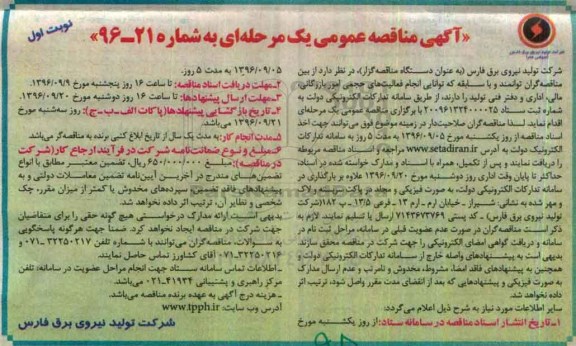 نوبت اول
«آگهی مناقصه عمومی یک مرحله‌ای به شماره ۲۱-۹۶»
شرکت تولید نیروی برق فارس
شرکت تولید نیروی برق فارس (به عنوان دستگاه مناقصه‌گزار)، در نظر دارد از بین
مناقصه‌گران توانمند و با سابقه که توانایی انجام فعالیت‌های حجمی امور بازرگانی،
مالی، اداری و دفتر فنی تولید را دارند از طریق سامانه تدارکات الکترونیکی دولت به
شماره ثبت ستاد ۲۰۰۹۶۱۳۴۴۰۰۰۰۲۵ با برگزاری مناقصه عمومی یک مرحله‌ای
اقدام نماید. لذا مناقصه‌گران صلاحیت‌دار در زمینه موضوع فوق می‌توانند جهت اخذ
اسناد مناقصه از روز یکشنبه مورخ ۱۳۹۶/۰۹/۰۵ به مدت ۵ روز به سامانه تدارکات
الکترونیک دولت به آدرس www.setadiran.ir مراجعه و اسناد مناقصه مربوطه
را دریافت نمایند و پس از تکمیل، همراه با اسناد و مدارک خواسته شده در اسناد،
حداکثر تا پایان وقت اداری روز دوشنبه مورخ ۱۳۹۶/۰۹/۲۰ علاوه بر بارگذاری در
سامانه تدارکات الکترونیکی دولت، به صورت فیزیکی و مجزا، در پاکت دربسته و لاک
و مهر شده به نشانی: شیراز - خیابان ارم - ارم ۱۳ - فرعی ۱۳/۵ - پ ۱۸۲ (شرکت
تولید نیروی برق فارس - کد پستی ۷۱۴۳۶۷۳۷۶۹ ارسال یا تسلیم نمایند. لازم به
ذکر است مناقصه‌گران در صورت عدم عضویت قبلی در سامانه، مراحل ثبت نام در
سامانه و دریافت گواهی امضای الکترونیکی را جهت شرکت در مناقصه محقق سازند.
بدیهی است به پیشنهادهای واصله خارج از سامانه تدارکات الکترونیکی دولت و
همچنین به پیشنهادهای فاقد امضا، مشروط، مخدوش و نامرتب و عدم ارسال مدارک
به صورت فیزیکی و پیشنهادهایی که بعد از انقضای مدت مقرر واصل شود، ترتیب اثر
داده نخواهد شد.
سایر اطلاعات مورد نیاز به شرح ذیل اعلام می‌گردد:
۱-تاریخ انتشار اسناد مناقصه در سامانه ستاد: از روز یکشنبه مورخ
۱۳۹۶/۰۹/۰۵ به مدت ۵ روز.
۲-مهلت دریافت اسناد مناقصه: تا ساعت ۱۶ روز پنجشنبه مورخ ۱۳۹۶/۰۹/۹
۳-مهلت ارسال پیشنهادها: تا ساعت ۱۶ روز دوشنبه مورخ ۱۳۹۶/۰۹/۲۰
۴-تاریخ بازگشایی پیشنهادها (پاکات الف-ب-ج): روز سه‌شنبه مورخ
۱۳۹۶/۹/۲۱ می‌باشد.
۵-مدت انجام کار: به مدت یک سال از تاریخ ابلاغ کتبی برنده به مناقصه‌گر می‌باشد.
۶-مبلغ و نوع ضمانت‌نامه شرکت در فرآیند ارجاع کار (شرکت
در مناقصه): مبلغ ۶۵۰/۰۰۰/۰۰۰ ریال، تضمین معتبر مطابق با انواع
تضمین‌های مندرج در آخرین آیین‌نامه تضمین معاملات دولتی و به
پیشنهادهای فاقد تضمین، سپرده‌های مخدوش یا کمتر از میزان مقرر، چک
شخصی و نظایر آن، ترتیب اثر داده نخواهد شد.
بدیهی است ارائه مدارک درخواستی هیچ گونه حقی را برای متقاضیان
جهت شرکت در مناقصه ایجاد نخواهد کرد. ضمناً جهت هرگونه پاسخگویی
به سوالات، مناقصه‌گران می‌توانند با شماره تلفن ۳۲۲۵۰۲۱۷-۰۷۱ و
۳۲۲۵۰۲۱۶-۰۷۱ آقای کشاورز تماس حاصل نمایند.
-اطلاعات تماس سامانه ستاد جهت انجام مراحل عضویت در سامانه: تلفن
مرکز راهبری و پشتیبانی ۴۱۹۳۴-۰۲۱ می‌باشد.
- هزینه درج آگهی به عهده برنده مناقصه می‌باشد.
آدرس وب سایت: www.tpph.ir
شرکت تولید نیروی برق فارس